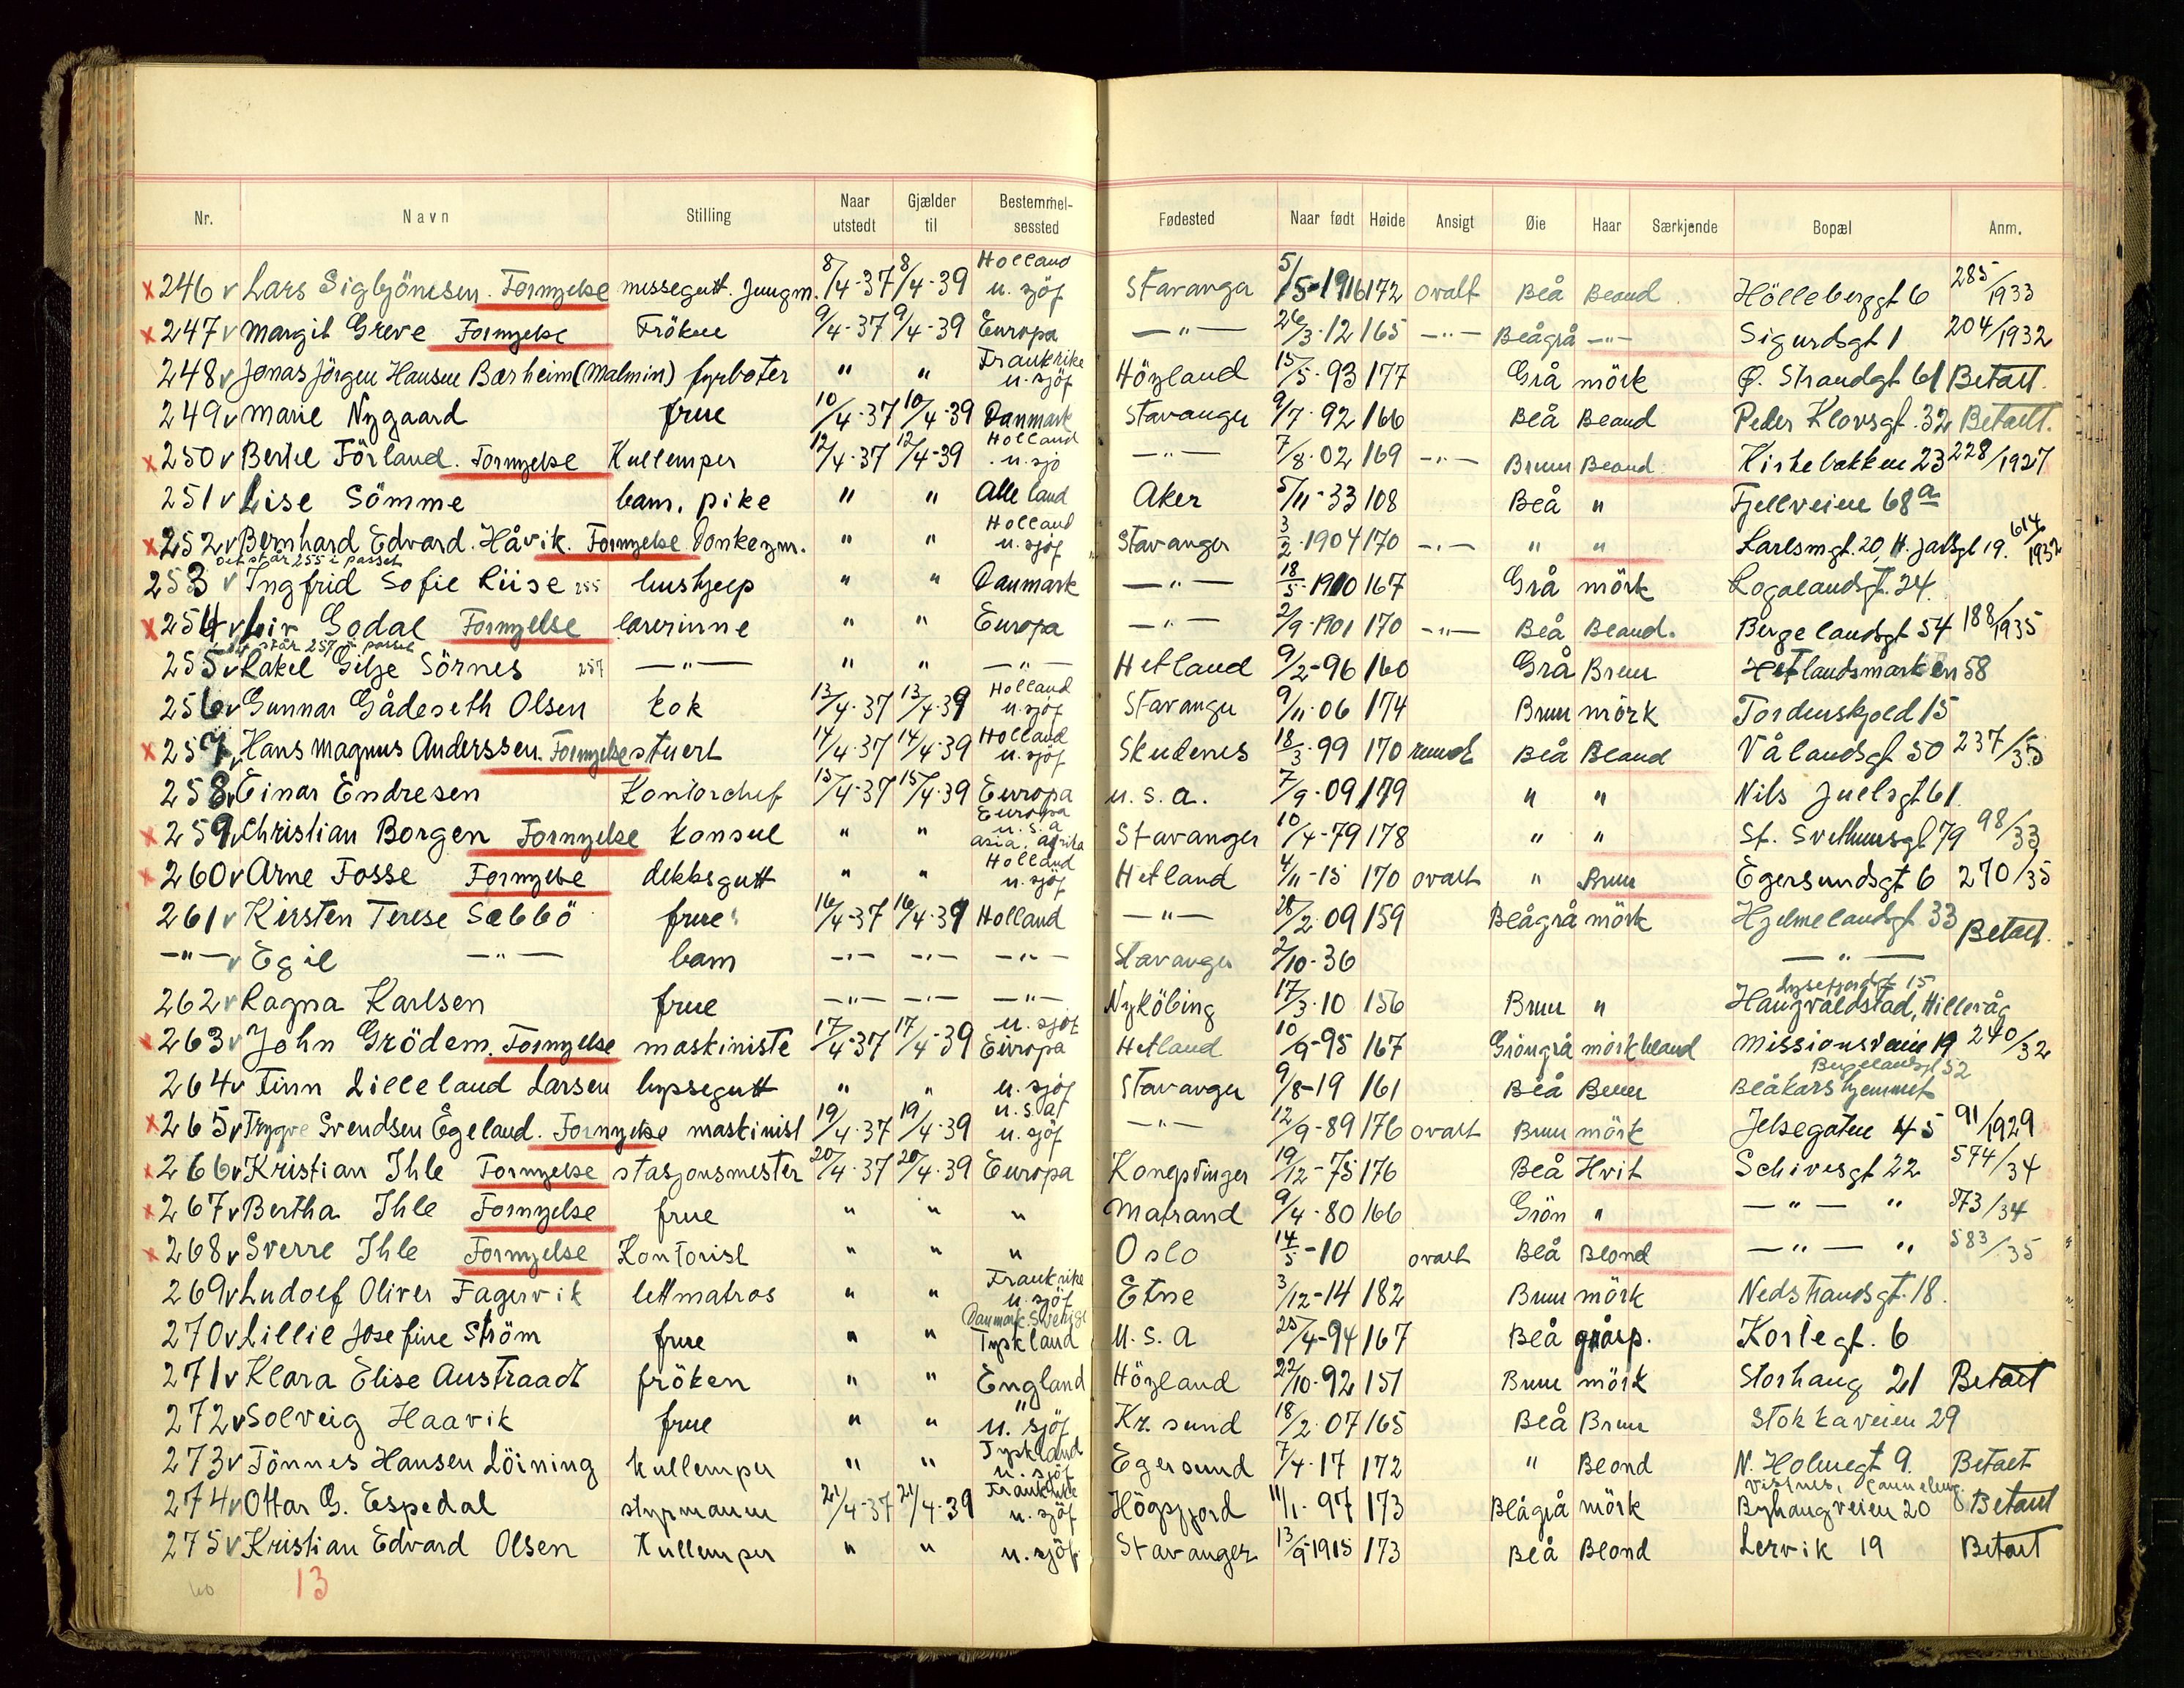 Nr. Navn Stilling Naar utstedt Gjælder til Bestemmelsessted Fødested Naar født Høide Ansigt Øie Haar Særkjende Bopæl Anm.
x 246 v Lars Sigbjörnsen. Fornyelse messegutt. Jungm. 8/4-37 8/4-39 Holland u. sjöf Stavanger 5/5-1916 172 ovalt Blå Blond Hölleberggt 6 285/1933
x 247 v Margit Greve Fornyelse Fröken 9/4-37 9/4-39 Europa —"— 26/3-12 165 —"— Blågrå —"— Sigurdsgt 1 204/1932
248 v Jonas Jörgen Hansen Bærheim (Malmin) fyrböter " " Frankrike u. sjöf Höyland 15/5-93 177 Grå mörk Ø. Strandgt 61 Betalt.
249 v Marie Nygaard frue 10/4-37 10/4-39 Danmark Stavanger 9/7-92 166 Blå Blond Peder Klowsgt. 32 Betalt.
x 250 v Bertel Förland. Fornyelse Kullemper 12/4-37 12/4-39 Holland u. sjö —"— 7/8-02 169 —"— Brun Blond Kirkebakken 23 228/1927
251 v Lise Sömme barn, pike " " Alle land Aker 5/11-33 108 Blå " Fjellveien 68 a
x 252 v Bernhard Edvard. Håvik. Fornyelse Donkeym. " " Holland u. sjöf Stavanger 3/2-1904 170 —"— " " Karlsmgt. 20, H. Jarlsgt 19. 614/1932
det står 255 i passet
253 v Ingfrid Sofie Riise 255 hushjelp " " Danmark —"— 18/5-1910 167 Grå mörk Rogalandsgt. 24
x 254 v Liv Godal Fornyelse lærerinne " " Europa —"— 2/9-1901 170 —"— Blå Blond. Bergelandsgt 54 188/1935
står 257 i passet
255 v Rakel Gilje Sörnes 257 —"— " " —"— Hetland 9/2-96 160 Grå Brun Hetlandsmarken 58
256 v Gunnar Gådeseth Olsen kok 13/4-37 13/4-39 Holland u. sjöf Stavanger 9/11-06 174 Brun mörk Tordenskjold 15
x 257 v Hans Magnus Anderssen. Fornyelse stuert 14/4-37 14/4-39 Holland u. sjöf Skudenes 18/3-99 170 rundt Blå Blond Vålandsgt 50 237/35
258 v Einar Endresen Kontorchef 15/4-37 15/4-39 Europa U.S.A. 7/9-09 179 " " Nils Juelsgt 61
x 259 v Christian Borgen Fornyelse konsul " " Europa U.S.A asia, afrika Stavanger 10/4-79 178 " " St. Svithunsgt 79 98/33
x 260 v Arne Fosse Fornyelse dekksgutt " " Holland u. sjöf Hetland 4/11-15 170 ovalt " Brun Egersundsgt 6 270/35
261 v Kirsten Terese Sæbbö frue 16/4-37 16/4-39 Holland —"— 28/2-09 159 Blågrå mörk Hjelmelandsgt 33 Betalt.
—"— v Egil —"— barn —"— —"— —"— Stavanger 2/10-36 —"—
262 v Ragna Karlsen frue —"— —"— —"— Nyköbing 17/3-10 156 Brun " Lysefjordgt 15 Haugvaldstad, Hillevåg
x 263 v John Grödem. Fornyelse maskiniste 17/4-37 17/4-39 u. sjöf Europa Hetland 10/9-95 167 Gröngrå mörkblond Missionsveien 19 240/32
264 v Finn Lilleland Larsen byssegutt " " u. sjöf Stavanger 9/8-19 161 Blå Brun Bergelandsgt 52 Blåkorshjemmet
x 265 v Trygve Svendsen Egeland. Fornyelse maskinist 19/4-37 19/4-39 U.S.A u. sjöf —"— 12/9-89 176 ovalt Brun mörk Jelsegaten 45 91/1929
x 266 v Kristian Ihle Fornyelse stasjonsmester 20/4-37 20/4-39 Europa Kongsvinger 19/12-75 176 Blå Hvit Schivesgt 22 574/34
x 267 v Bertha Ihle Fornyelse frue " " " Matrand 9/4-80 166 Grön " —"— " 573/34
x 268 v Sverre Ihle Fornyelse Kontorist " " " Oslo 14/5-10 ovalt Blå Blond —"— " 583/35
269 v Ludolf Oliver Fagervik lettmatros " " Frankrike u. sjöf Etne 3/12-14 182 Brun mörk Nedstrandsgt. 18.
270 v Lillie Josefine Ström frue " " Danmark. Sverige Tyskland U.S.A 25/4-94 167 Blå gråsp. Kortegt. 6
271 v Klara Elise Austraadt fröken " " England Höyland 22/10-92 151 Brun mörk Storhaug 21 Betalt
272 v Solveig Haavik frue " " " u. sjöf Kr. sund 18/2-07 165 Blå Brun Stokkaveien 29
273 v Tönnes Hansen Löining kullemper " " Tyskland u. sjöf Egersund 7/4-17 172 " Blond N. Holmegt 9. Betalt
274 v Ottar G. Espedal styrmann 21/4-37 21/4-39 Frankrike u. sjöf Högsfjord 11/1-97 173 Blågrå mörk Byhaugveien 20 Betalt
275 v Kristian Edvard Olsen kullemper " " u. sjöf Stavanger 13/9-1915 173 Blå Blond Lervik 19 Betalt
13